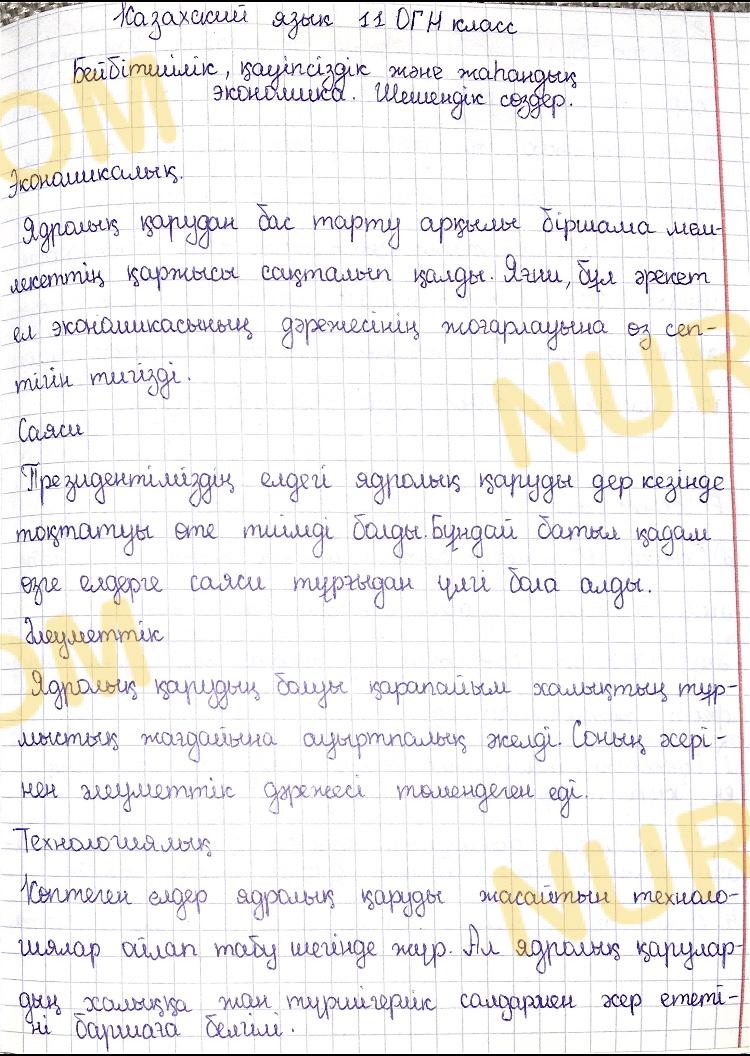 Казахский язык 11 ОГН класс
Бейбітшілік, қауіпсіздік және жаһандық
экономика. Шешендік сөздер.
Экономикалық.
Ядролық қарудан бас тарту арқылы біршама мем-
лекеттің қаржысы сақталып қалды. Яғни, бұл әрекет
ел экономикасының дәрежесінің жоғарлауына өз сеп-
тігін тигізді.
Саяси
Президентіміздің елдегі ядролық қаруды дер кезінде
тоқтатуы өте тиімді болды. Бұндай батыл қадам
өзге елдерге саяси тұрғыдан үлгі бола алды.
Әлеуметтік
Ядролық қарудың болуы қарапайым халықтың тұр-
мыстық жағдайына ауыртпалық әкелді. Соның әсері-
нен әлеуметтік дәрежесі төмендеген еді.
Технологиялық
Көптеген елдер ядролық қаруды жасайтын техноло-
гиялар ойлап табу шегінде жүр. Ал ядролық қарулар-
дың халыққа жан түршігерлік салдармен әсер ететі-
ні баршаға белгілі.
OM
NUR
OM
NUR